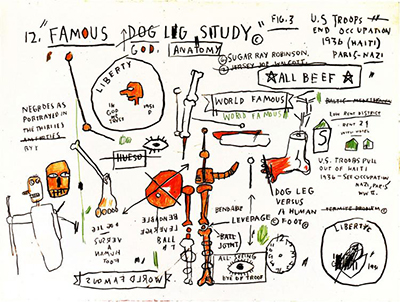 12. "FAMOUS DOG LEG STUDY"
GOD.
ANATOMY ©
FIG. 3
U.S TROOPS
END OCCUPATION
1936 (HAITI)
PARIS-NAZI
© SUGAR RAY ROBINSON.
© JERSEY JOE WALCOTT.
ALL BEEF
LIBERTY
IN
GOD
WE
TRUST
1951
D
NEGROES AS
PORTRAYED IN
THE THIRTIES
WORLD FAMOUS
WORLD FAMOUS
LOW RENT DISTRICT
RENT 2$
S
HUESO
U.S. TROOPS PULL
OUT OF HAITI
1936—SEE OCCUPATION
NAZI, PARIS
WW II.
DOG LEG
VERSUS
A HUMAN
© FOOT ©
BENDABLE
LEVERAGE
BALL
JOINT
BENDABLE
LEVERAGE
BALL
DOG LEG
VERSUS
A HUMAN
FOOT
ALL-SEEING
EYE OF TROOP
WORLD FAMOUS
LIBERTY